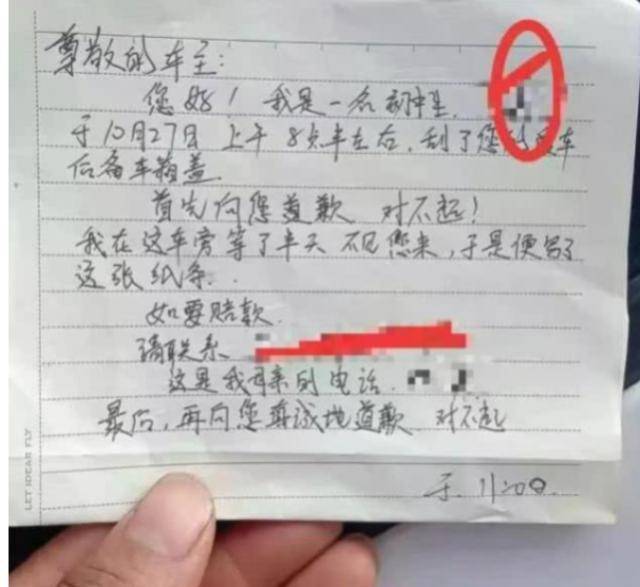 尊敬的车主:
您好! 我是一名初中生
于10月27日 上午 8点半左右,刮了您的爱车
后备车箱盖.
首先向您道歉 对不起!
我在这车旁等了半天 不见您来,于是便写了
这张纸条.
如要赔款.
请联系
这是我母亲的电话.
最后,再向您真诚地道歉 对不起
于. 11:00.
LET IDEAR FLY